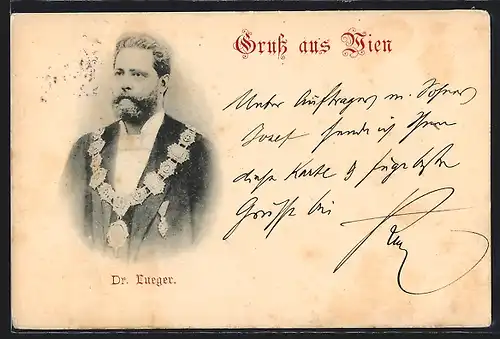 Gruß aus Wien
Unter Auftrages m. Sohnes
Josef sende ich Ihnen
diese Karte & füge beste
Grüße bei
Dr. Lueger.